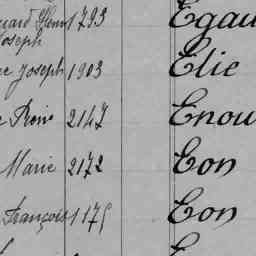 Henri 1793 Egau
Joseph
Joseph 1903 Elie
René 2147 Enou
Marie 2172 Eon
François 1175 Eon